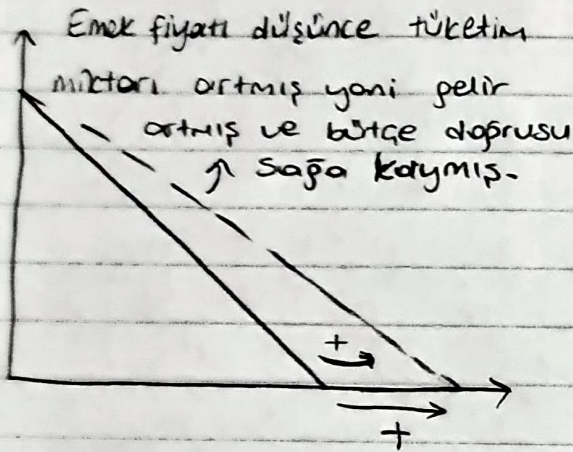 Emek fiyatı düşünce tüketim
miktarı artmış yani gelir
artmış ve bütçe doğrusu
sağa kaymış.
+
+